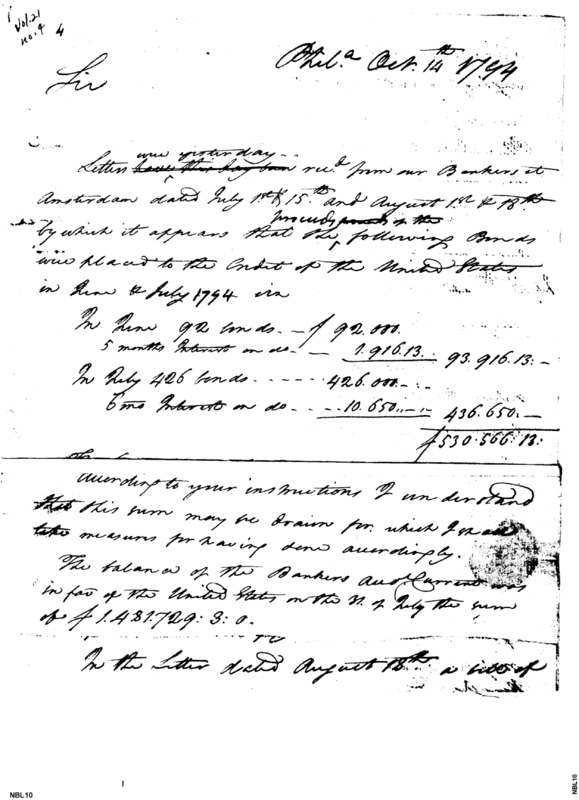 Vol. 21
no. 4 4
Phil.a Oct. 14th 1794
Sir
were yesterday
Letters have this day been rec.d from our Bankers at
Amsterdam dated July 1st & 15.th and August 1st & 18th
proceeds of the
by which it appears that the following Bonds
were placed to the Credit of the United States
in June & July 1794 viz
In June 92 bonds. — f 92.000.
5 months Interest on do — 1.916.13. 93.916.13:—
In July 426 bonds. - - - - - 426.000. - . -
6 mo Interest on do - - . - - 10.650. . - . - 436.650. —
f 530.566:13:
according to your instructions I understand
that this sum may be drawn for, which I shall
take measures for having done accordingly.
The balance of the Bankers Acct Current was
in fav of the United States on the 31 of July the sum
of f 1.481.729: 3: 0.
In the Letter dated August 18th a bill of
NBL10
NBL10